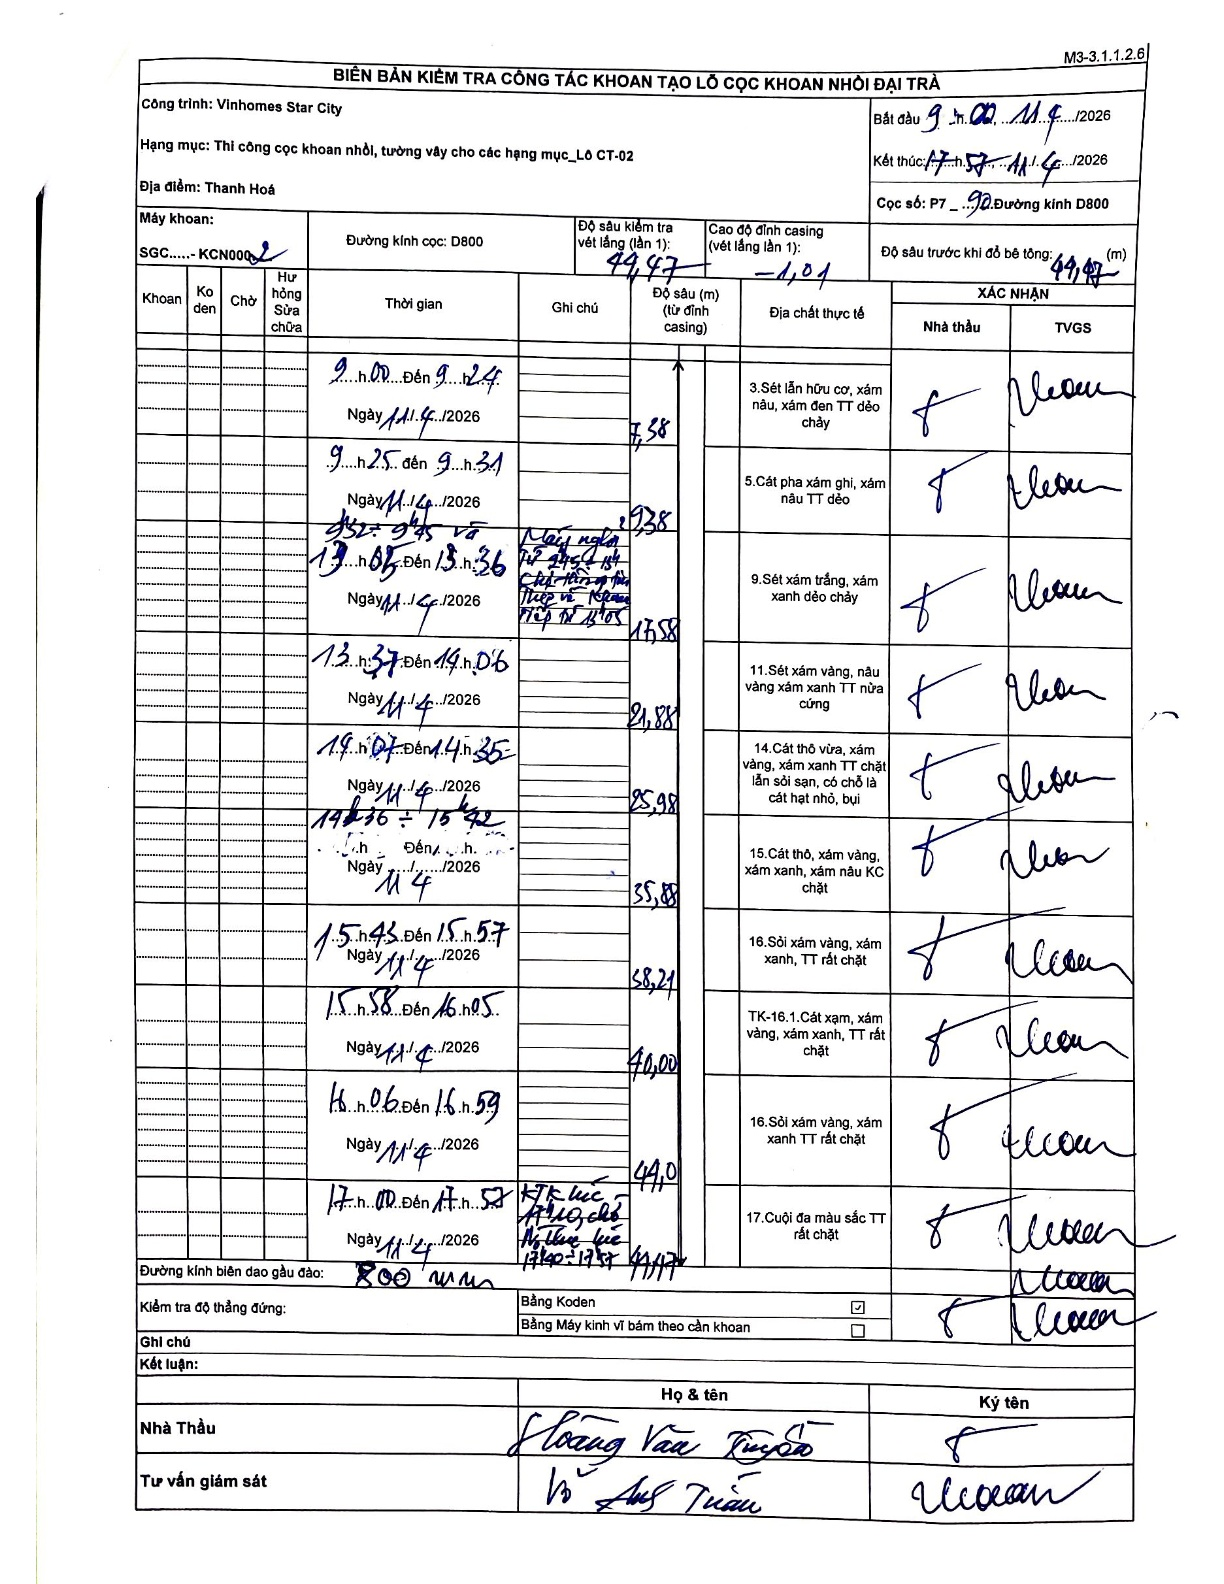 M3-3.1.1.2.6
BIÊN BẢN KIỂM TRA CÔNG TÁC KHOAN TẠO LỖ CỌC KHOAN NHỒI ĐẠI TRÀ
Công trình: Vinhomes Star City
Bắt đầu 9 h 00, 11/4/2026
Hạng mục: Thi công cọc khoan nhồi, tường vây cho các hạng mục_Lô CT-02
Kết thúc: 17 h 57, 11/4/2026
Địa điểm: Thanh Hoá
Cọc số: P7 _ 90 Đường kính D800
Máy khoan:
SGC.....- KCN0002
Đường kính cọc: D800
Độ sâu kiểm tra vét lắng (lần 1):
44,47
Cao độ đỉnh casing (vét lắng lần 1):
-1,01
Độ sâu trước khi đổ bê tông: 44,47 (m)
Khoan
Ko den
Chờ
Hư hỏng Sửa chữa
Thời gian
Ghi chú
Độ sâu (m) (từ đỉnh casing)
Địa chất thực tế
XÁC NHẬN
Nhà thầu
TVGS
9 h 00 Đến 9 h 24
Ngày 11/4/2026
7,38
3.Sét lẫn hữu cơ, xám nâu, xám đen TT dẻo chảy
9 h 25 đến 9 h 31
Ngày 11/4/2026
9,38
5.Cát pha xám ghi, xám nâu TT dẻo
9h32 ÷ 9h45 và
13 h 05 Đến 13 h 36
Ngày 11/4/2026
Máy nghỉ
Từ 9h45 ÷ 13h
Thép và Khoan
Tiếp từ 13h05
17,58
9.Sét xám trắng, xám xanh dẻo chảy
13 h 37 Đến 14 h 06
Ngày 11/4
21,88
11.Sét xám vàng, nâu vàng xám xanh TT nửa cứng
14 h 07 Đến 14 h 35
Ngày 11/4/2026
25,98
14.Cát thô vừa, xám vàng, xám xanh TT chặt lẫn sỏi sạn, có chỗ là cát hạt nhỏ, bụi
14h36 ÷ 15h42
h Đến h
Ngày 11/4/2026
35,88
15.Cát thô, xám vàng, xám xanh, xám nâu KC chặt
15 h 43 Đến 15 h 57
Ngày 11/4/2026
38,21
16.Sỏi xám vàng, xám xanh, TT rất chặt
15 h 58 Đến 16 h 05
Ngày 11/4/2026
40,00
TK-16.1.Cát xạm, xám vàng, xám xanh, TT rất chặt
16 h 06 Đến 16 h 59
Ngày 11/4/2026
44,0
16.Sỏi xám vàng, xám xanh TT rất chặt
17 h 00 Đến 17 h 57
Ngày 11/4/2026
KTK lúc
17h10, chờ
N. Thu lúc
17h40 ÷ 17h57
44,47
17.Cuội đa màu sắc TT rất chặt
Đường kính biên dao gầu đào: 800 mm
Kiểm tra độ thẳng đứng:
Bằng Koden ☑
Bằng Máy kinh vĩ bám theo cần khoan ☐
Ghi chú
Kết luận:
Họ & tên
Ký tên
Nhà Thầu
Hoàng Văn
Tư vấn giám sát
Võ Anh Tuấn